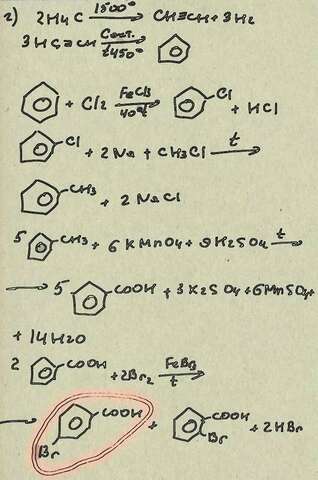 2) 2H4C 1500° → CH≡CH + 3H2
3HC≡CH Cакт. t450° →
+ Cl2 FeCl3 40°t → Cl + HCl
Cl + 2Na + CH3Cl t →
CH3 + 2NaCl
5 CH3 + 6KMnO4 + 9H2SO4 t →
→ 5 COOH + 3K2SO4 + 6MnSO4 +
+ 14H2O
2 COOH + 2Br2 FeBr3 t →
→ COOH Br + COOH Br + 2HBr